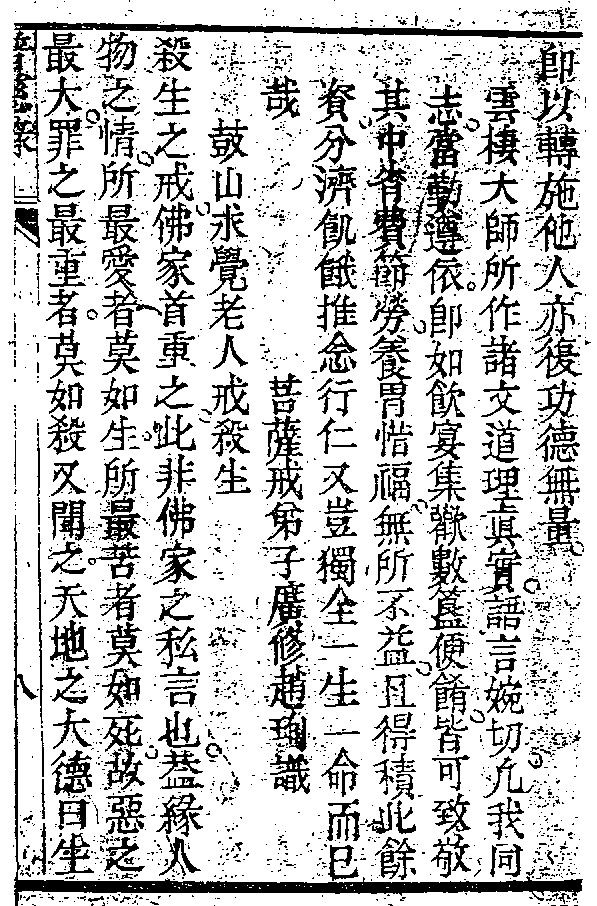 卽以轉施他人亦復功德無量
雲棲大師所作諸文道理眞實語言婉切凢我同
志當勤遵依卽如飲宴集歡數簋便餚皆可致敬
其中省費節勞養胃惜福無所不益且得積此餘
資分濟飢餓推念行仁又豈獨全一生一命而已
哉
菩薩戒弟子廣修趙珣識
鼓山求覺老人戒殺生
殺生之戒佛家首重之此非佛家之私言也葢緣人
物之情所最愛者莫如生所最苦者莫如死故惡之
最大罪之最重者莫如殺又聞之天地之大德曰生
八